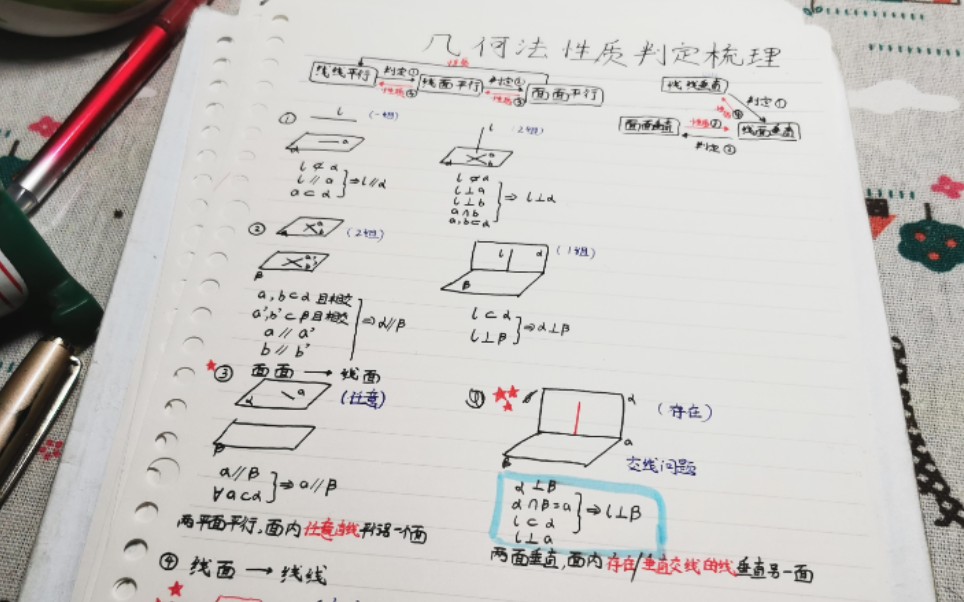 几何法性质判定梳理
性质
线线平行 判定① 线面平行 判定② 面面平行
性质④ 性质③
线线垂直 判定①
性质④
面面垂直 性质③ 线面垂直
判定②
① l (一组)
α a
l ⊄ α
l // a
a ⊂ α
⇒ l // α
l (2组)
α a b
l ⊄ α
l ⊥ a
l ⊥ b
a ∩ b
a, b ⊂ α
⇒ l ⊥ α
② a b (2组)
α
a' b'
β
a, b ⊂ α 且相交
a', b' ⊂ β 且相交
a // a'
b // b'
⇒ α // β
l α (1组)
β
l ⊂ α
l ⊥ β
⇒ α ⊥ β
③ 面面 → 线面
α a (任意)
β
a // β
∀ a ⊂ α
⇒ a // β
两平面平行,面内任意直线平行另一个面
③ α (存在)
a
β 交线问题
α ⊥ β
α ∩ β = a
l ⊂ α
l ⊥ a
⇒ l ⊥ β
两面垂直,面内存在/垂直交线的线垂直另一面
④ 线面 → 线线